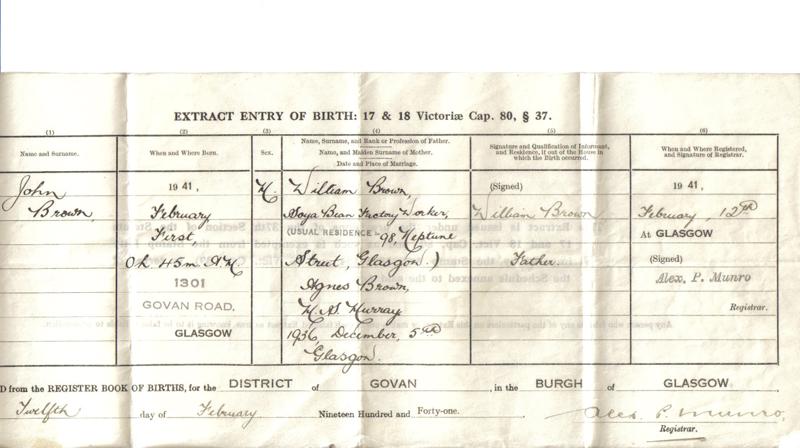 EXTRACT ENTRY OF BIRTH: 17 & 18 Victoriæ Cap. 80, § 37.
(1) (2) (3) (4) (5) (6)
Name and Surname.
When and Where Born.
Sex.
Name, Surname, and Rank or Profession of Father.
Name, and Maiden Surname of Mother.
Date and Place of Marriage.
Signature and Qualification of Informant,
and Residence, if out of the House in
which the Birth occurred.
When and Where Registered,
and Signature of Registrar.
John
Brown,
1941,
February
First,
0h. 45m. A.M.
1301
GOVAN ROAD,
GLASGOW
M.
William Brown,
Soya Bean Factory Worker,
(USUAL RESIDENCE - 98, Neptune
Street, Glasgow.)
Agnes Brown,
M.S. Murray
1936, December, 5th
Glasgow.
(Signed)
William Brown
Father.
1941,
February, 12th
At GLASGOW
(Signed)
Alex. P. Munro
Registrar.
D from the REGISTER BOOK OF BIRTHS, for the DISTRICT of GOVAN, in the BURGH of GLASGOW
Twelfth day of February Nineteen Hundred and Forty-one. Alex. P. Munro,
Registrar.